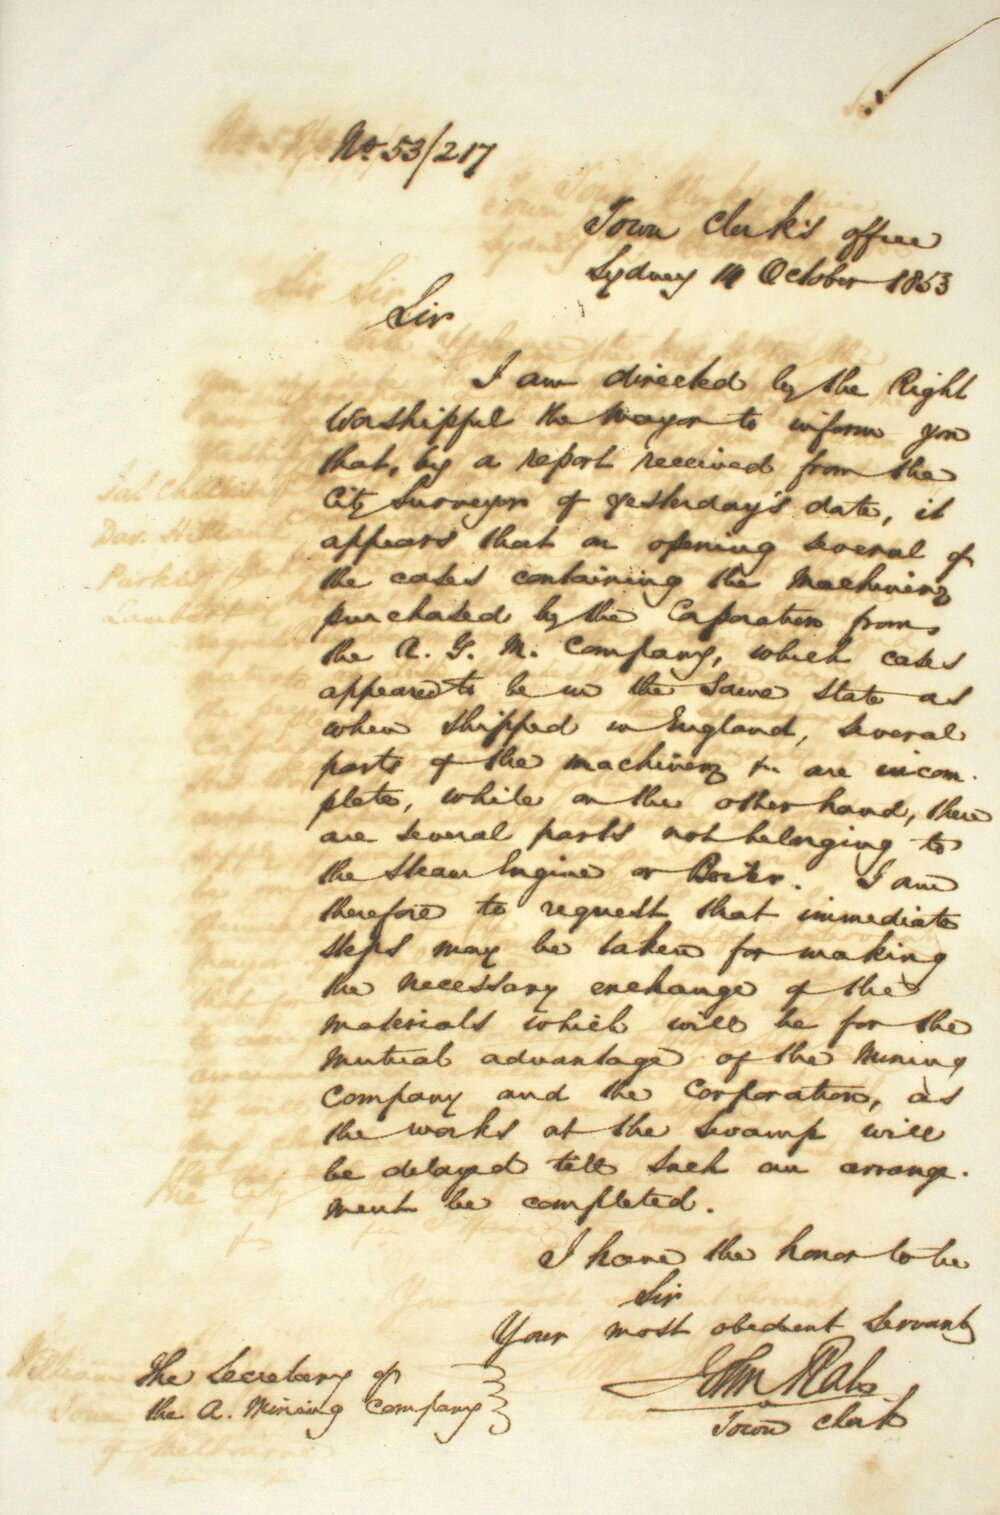 No. 53/217
Town Clerk's office
Sydney 14 October 1853
Sir
I am directed by the Right
Worshipful the Mayor to inform you
that, by a report received from the
City Surveyor of yesterday's date, it
appears that on opening several of
the cases containing the Machinery
purchased by the Corporation from
the A. G. M. Company, which cases
appeared to be in the same state as
when shipped in England, several
parts of the machinery &c are incom-
plete, while on the other hand, there
are several parts not belonging to
the Steam Engine or Boiler. I am
therefore to request that immediate
steps may be taken for making
the necessary exchange of the
materials which will be for the
mutual advantage of the Mining
Company and the Corporation, as
the works at the Swamp will
be delayed till such an arrange-
ment be completed.
I have the honor to be
Sir
Your most obedient Servant
John Rae
Town Clerk
The Secretary of
the A. Mining Company